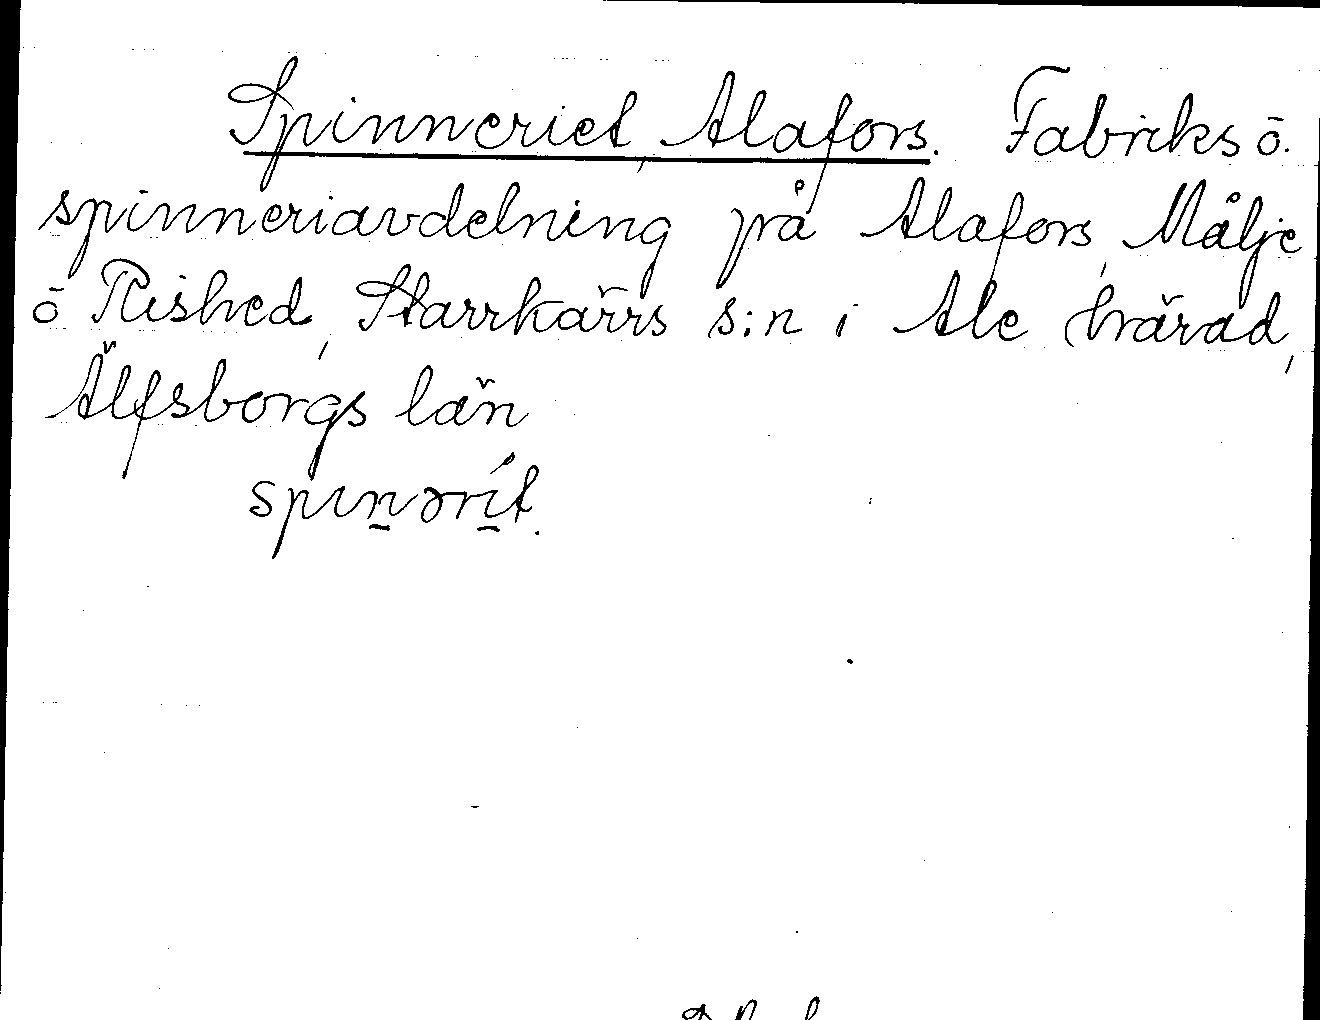 Spinneriet, Alafors. Fabriks ō.
spinneriavdelning på Alafors, Målje
ō Rished, Starrkärrs s:n i Ale härad,
Älfsborgs län
spınərít.